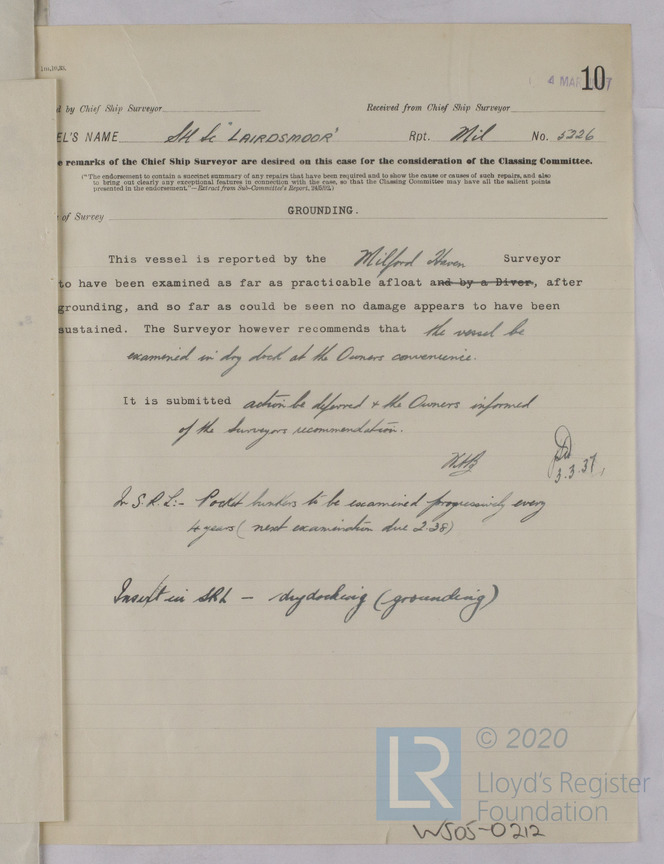 4 MAR 10
d by Chief Ship Surveyor Received from Chief Ship Surveyor
EL'S NAME "LAIRDSMOOR" Rpt. Mil No. 5226
e remarks of the Chief Ship Surveyor are desired on this case for the consideration of the Classing Committee.
("The endorsement to contain a succinct summary of any repairs that have been required and to show the cause or causes of such repairs, and also
to bring out clearly any exceptional features in connection with the case, so that the Classing Committee may have all the salient points
presented in the endorsement."—Extract from Sub-Committee's Report,
of Survey GROUNDING.
This vessel is reported by the Milford Haven Surveyor
to have been examined as far as practicable afloat and by a Diver, after
grounding, and so far as could be seen no damage appears to have been
sustained. The Surveyor however recommends that the vessel be
examined in dry dock at the Owners convenience.
It is submitted action be deferred & the Owners informed
of the Surveyors recommendation.
3.3.37
In S.R.L:- Pocket bunkers to be examined progressively every
4 years (next examination due 2.38)
Insert in SRL — drydocking (grounding)
LR © 2020
Lloyd's Register
Foundation
W505-0212